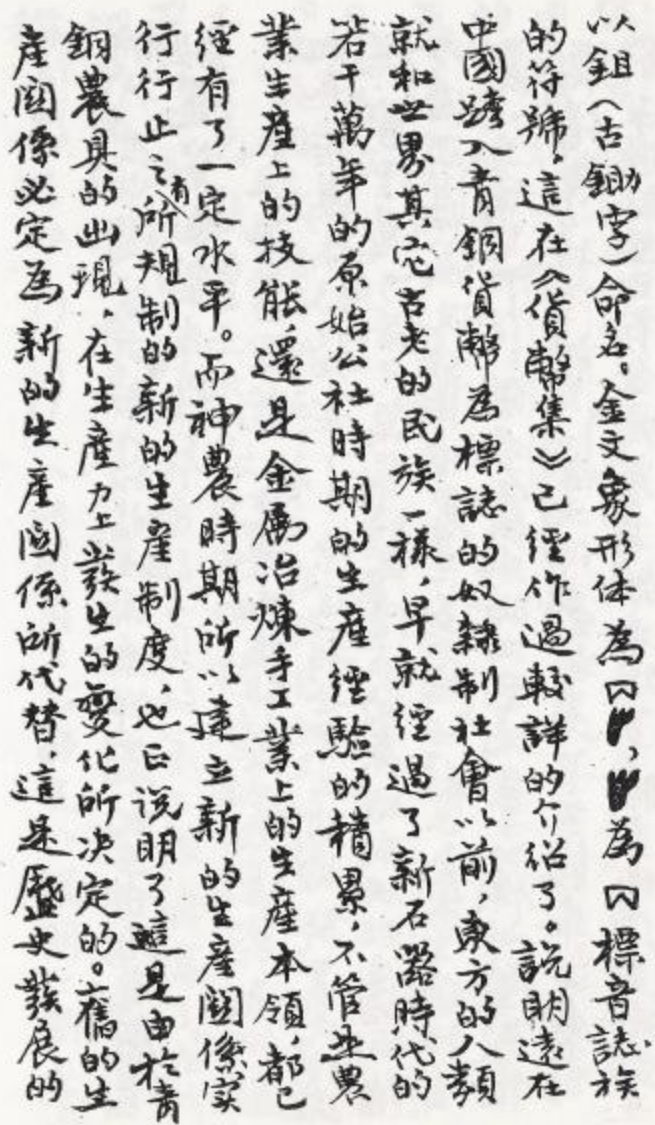 以鉏（古鋤字）命名。金文象形体為，為標音誌族
的符號，這在《貨幣集》已經作過較詳的介绍了。説明遠在
中國跨入青銅貨幣為標誌的奴隸制社會以前，東方的人類
就和世界其它古老的民族一樣，早就經過了新石器時代的
若干萬年的原始公社時期的生產經驗的積累，不管是農
業生產上的技能，還是金屬冶煉手工業上的生產本領，都已
經有了一定水平。而神農時期所以建立新的生產關係实
行行止之有所規制的新的生產制度，也正说明了這是由於青
銅農具的出現，在生產力上發生的變化所决定的。舊的生
產關係必定為新的生產關係所代替，這是歷史發展的